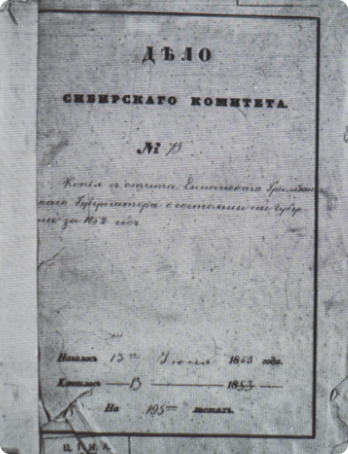 ДѢЛО
СИБИРСКАГО КОМИТЕТА.
№ 73
Копія съ отчета Енисейскаго Граждан
скаго Губернатора о состояніи сей Губер
ніи за 1852 годъ
Началось 13го Іюля 1853 года.
Кончилось — 13 — 1853
На 195 листахъ.
Ц.Г.И.А.